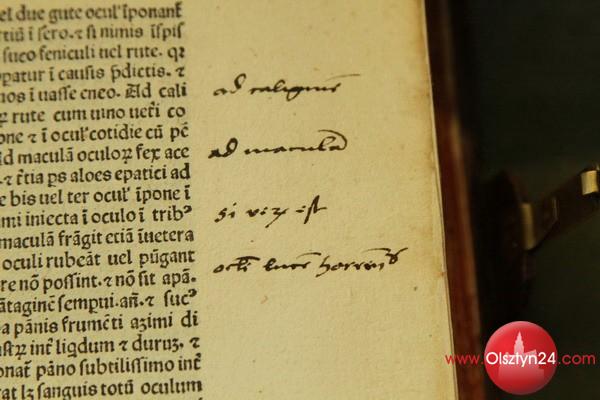 el due gute ocul' īponant̄
rtiū ī sero. ⁊ si nimis īspis
suco feniculi uel rute. qꝛ
patur ī causis p̄dictis. ⁊
nos ī uasse eneo. Ad cali
ꝛ rute cum uino uet̄i co
one ⁊ ī ocul' cotidie cū pē
Ad maculā oculoꝝ fex ace
. ⁊ t̄tia ps aloes epatici ad
e bis uel ter ocul' īpone ī
mi iniecta ī oculo ī trib⁹
maculā frāgit etiā īuetera
oculi rubeāt uel pūgant
re nō possint. ⁊ nō sit apā.
ātaginē sempui. añ. ⁊ suc⁹
a pānis frumēti azimi di
int̄ liqdum ⁊ duruꝫ. ⁊
onat̄ pāno subtilissimo int̄
sanguis totū oculum
ad caliginē
ad maculā
si est
www.Olsztyn24.com